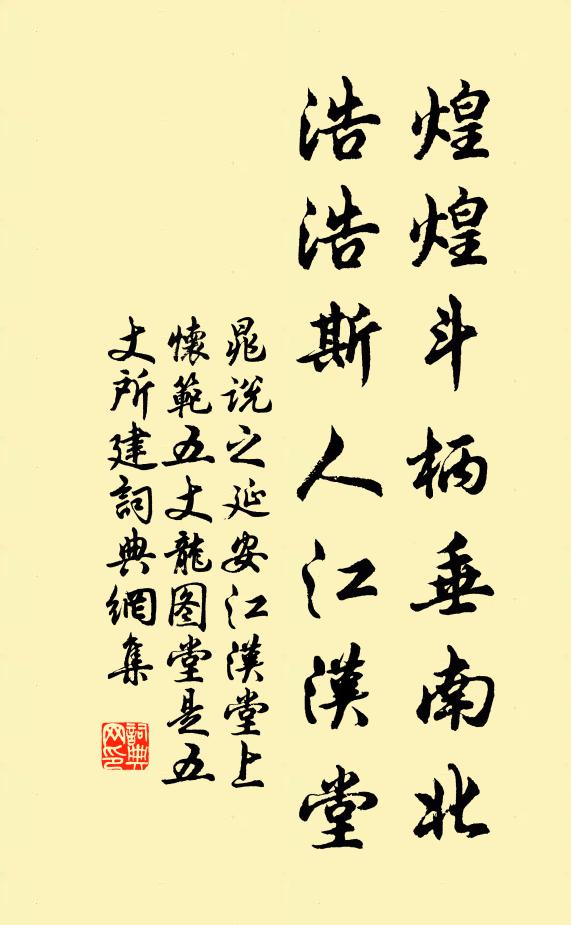 煌煌斗柄垂南北
浩浩斯人江漢堂
晁說之延安江漢堂上
懷範五丈龍图堂是五
丈所建詞典網集
詞典网印